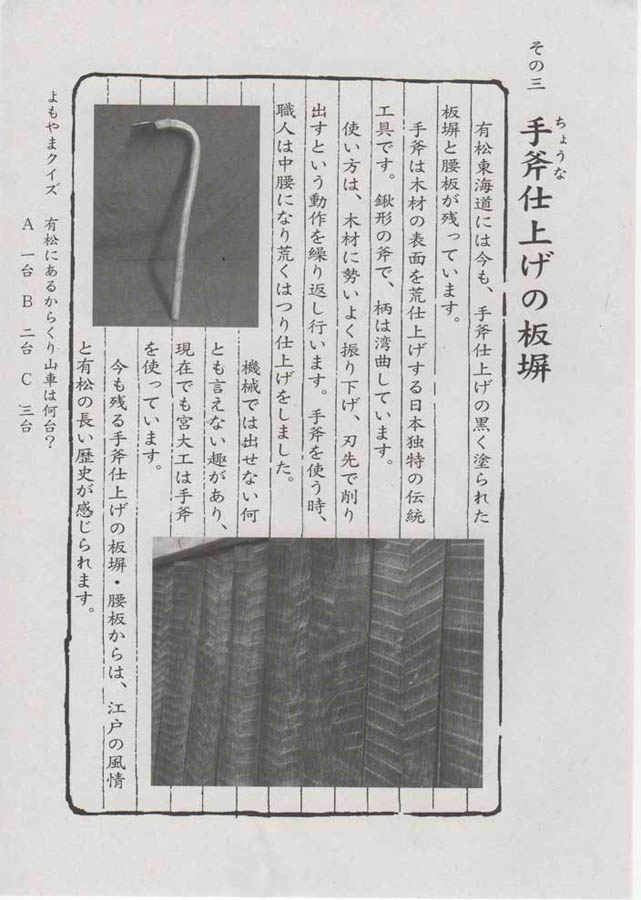 その三
手斧仕上げの板塀
ちょうな
有松東海道には今も、手斧仕上げの黒く塗られた
板塀と腰板が残っています。
手斧は木材の表面を荒仕上げする日本独特の伝統
工具です。鍬形の斧で、柄は湾曲しています。
使い方は、木材に勢いよく振り下げ、刃先で削り
出すという動作を繰り返し行います。手斧を使う時、
職人は中腰になり荒くはつり仕上げをしました。
機械では出せない何
とも言えない趣があり、
現在でも宮大工は手斧
を使っています。
今も残る手斧仕上げの板塀・腰板からは、江戸の風情
と有松の長い歴史が感じられます。
よもやまクイズ 有松にあるからくり山車は何台?
A 一台 B 二台 C 三台